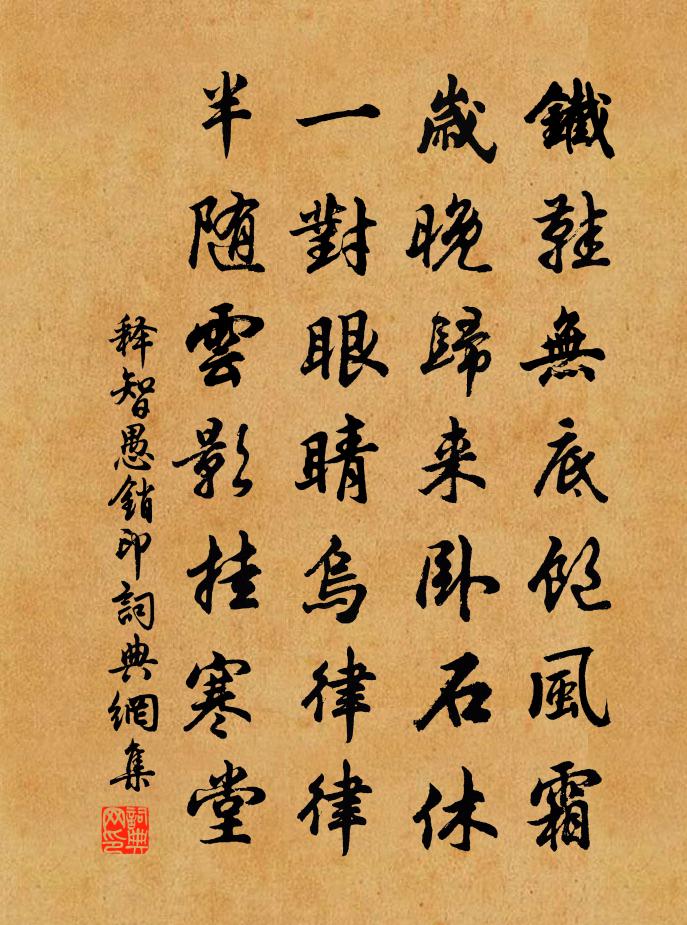 鐵鞋無底飽風霜
歲晚歸来卧石休
一對眼睛烏律律
半随雲影挂寒堂
释智愚銷印詞典網集
詞典网印